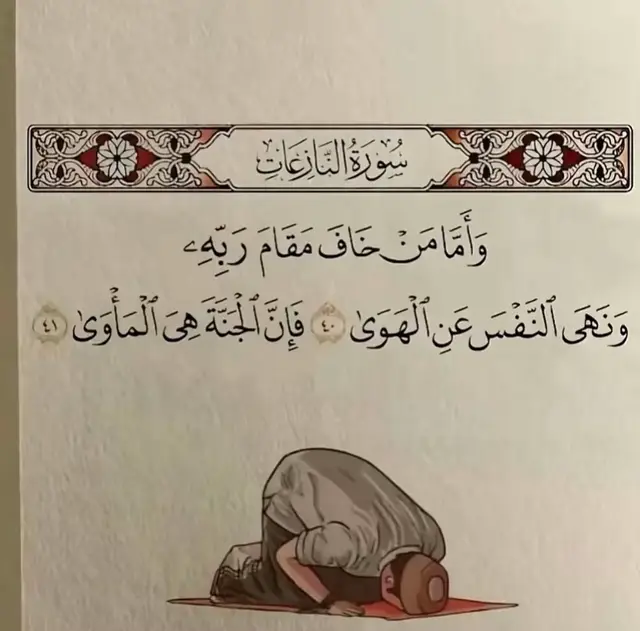 سُورَةُ النَّازِعَاتِ
وَأَمَّا مَنْ خَافَ مَقَامَ رَبِّهِۦ
وَنَهَى ٱلنَّفْسَ عَنِ ٱلْهَوَىٰ ٤٠ فَإِنَّ ٱلْجَنَّةَ هِىَ ٱلْمَأْوَىٰ ٤١